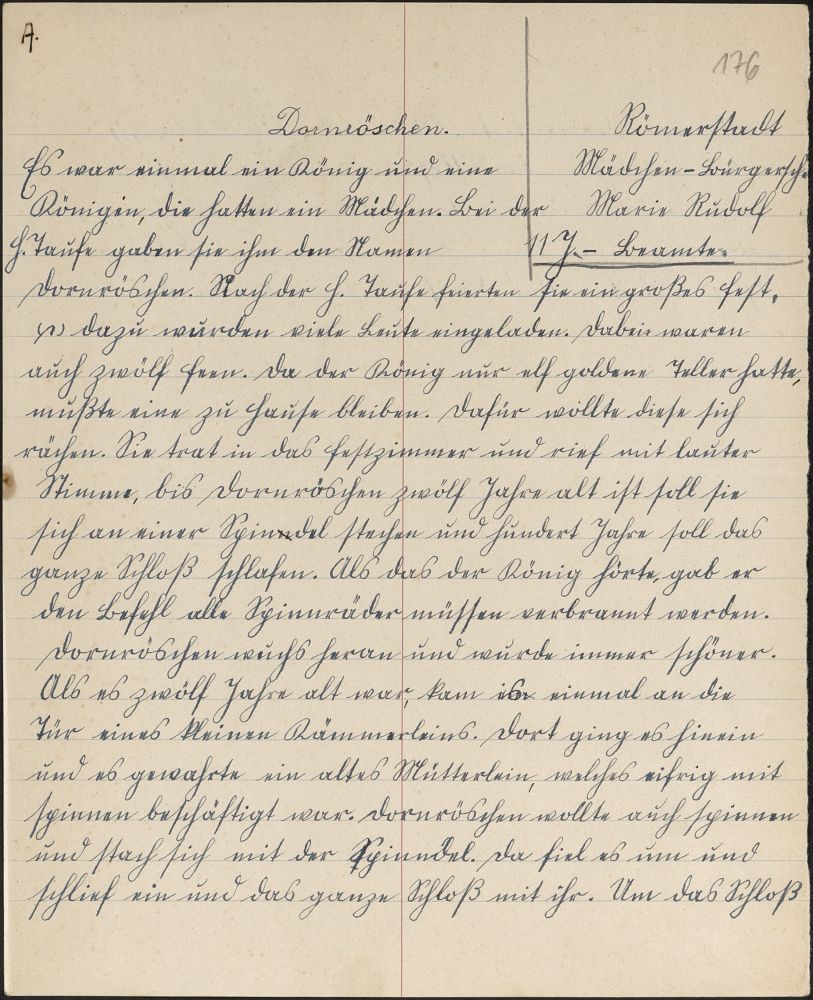 A.
176
Dornröschen.
Römerstadt
Mädchen-Bürgersch.
Marie Rudolf
11 J. - Beamte.
Es war einmal ein König und eine
Königin, die hatten ein Mädchen. Bei der
h. Taufe gaben sie ihm den Namen
Dornröschen. Nach der h. Taufe feierten sie ein großes Fest,
dazu wurden viele Leute eingeladen. Dabei waren
auch zwölf Feen. Da der König nur elf goldene Teller hatte,
mußte eine zu Hause bleiben. Dafür wollte diese sich
rächen. Sie trat in das Festzimmer und rief mit lauter
Stimme, bis Dornröschen zwölf Jahre alt ist soll sie
sich an einer Spindel stechen und hundert Jahre soll das
ganze Schloß schlafen. Als das der König hörte, gab er
den Befehl alle Spinnräder müssen verbrannt werden.
Dornröschen wuchs heran und wurde immer schöner.
Als es zwölf Jahre alt war, kam es einmal an die
Tür eines kleinen Kämmerleins. Dort ging es hinein
und es gewahrte ein altes Mütterlein, welches eifrig mit
spinnen beschäftigt war. Dornröschen wollte auch spinnen
und stach sich mit der Spindel. Da fiel es um und
schlief ein und das ganze Schloß mit ihr. Um das Schloß